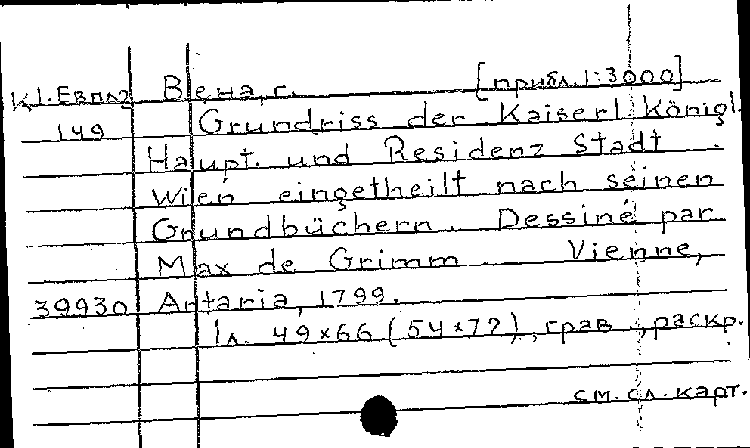 К1.Евпл2 Вена, г. [прибл. 1:3000]
149 Grundriss der Kaiserl. Königl.
Haupt. und Residenz Stadt
Wien eingetheilt nach seinen
Grundbüchern. Dessiné par
Max de Grimm Vienne,
39930 Artaria, 1799.
1 л. 49×66 (54×77), грав., раскр.
см. сл. карт.